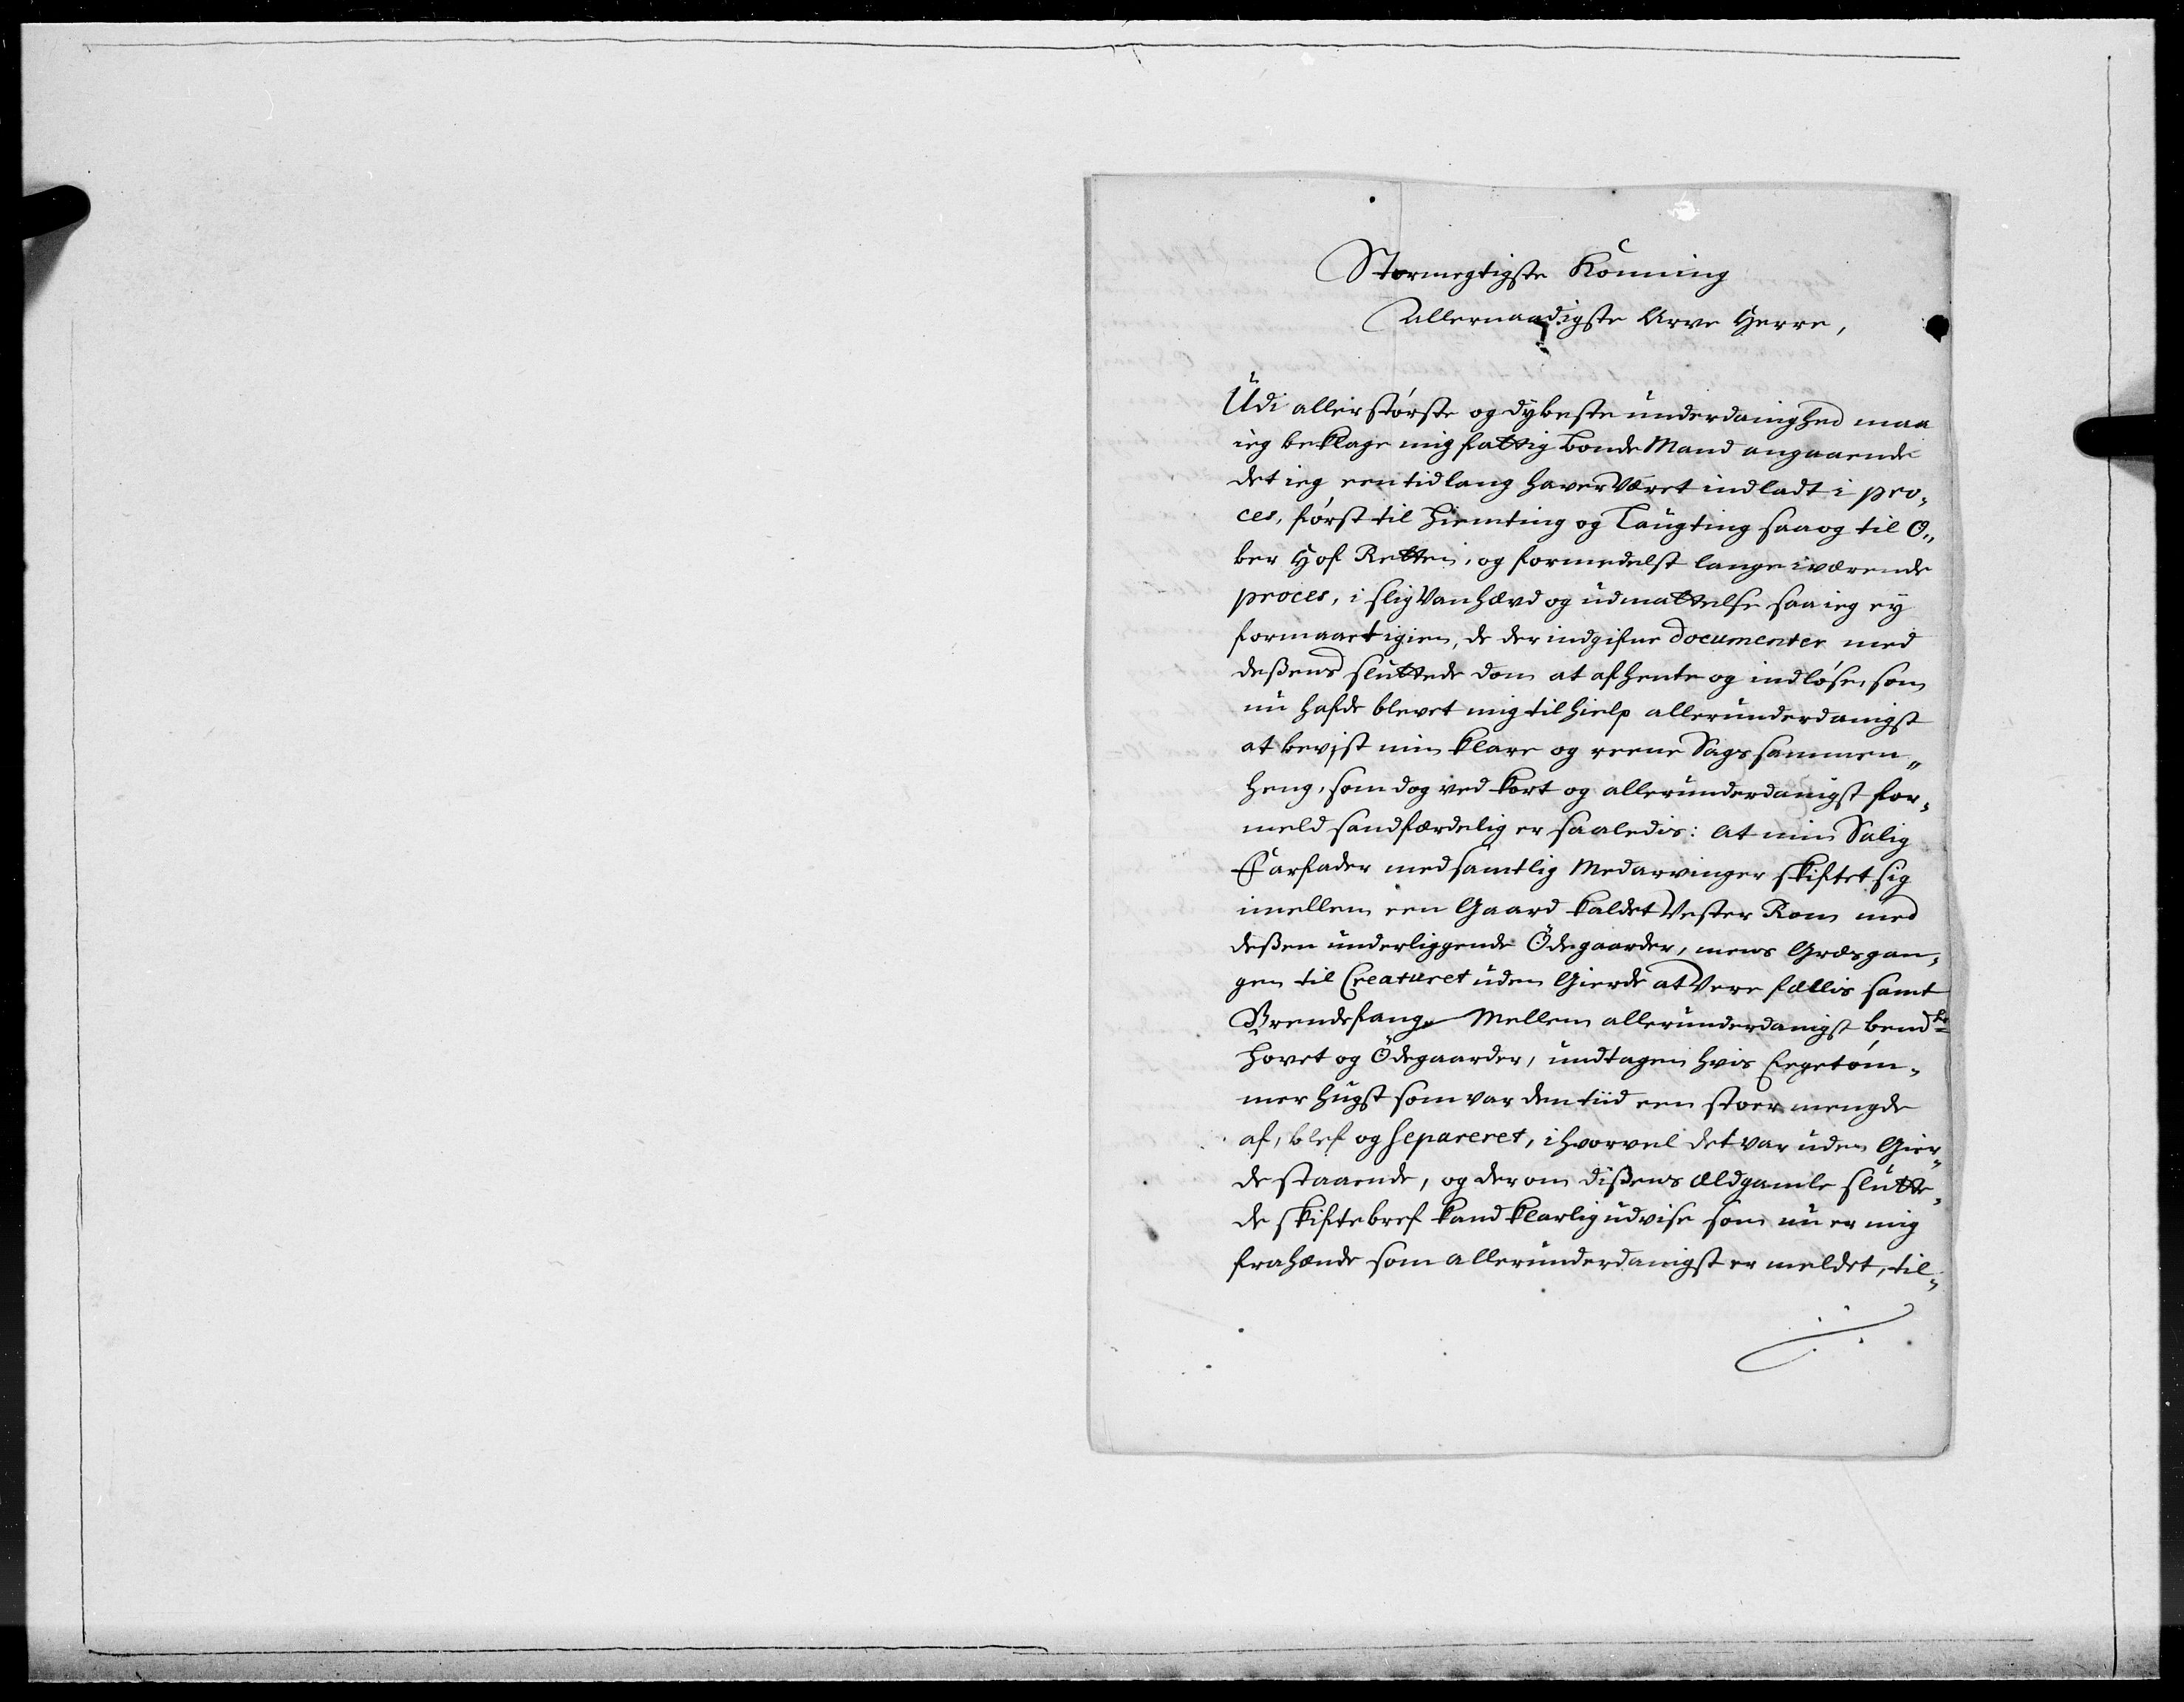 Stormegtigste Konning
Allernaadigste Arve Herre,
Udi allerstørste og dybeste underdanighed maa
ieg beklage mig fattig Bonde Mand angaaende
det ieg een tid lang haver været indladt i pro¸
ces, først til Hiemting og Laugting saa og til O„
ber Hof Retten, og formedelst lange iværende
proces, i slig Vanhævd og udmattelse saa ieg ey
formaar igien, de der indgifne documenter med
deßens sluttede dom at afhente og indløse, som
nu hafde blevet mig til hielp allerunderdanigst
at bevist min klare og reene Sags sammen„
heng, som dog ved kort og allerunderdanigst for¸
meld sandfærdelig er saaledis: At min Salig
Farfader med samtlig Medarvinger skiftet sig
imellem een Gaard kaldet Vester Rom med
deßen underliggende Ödegaarder, mens Græsgan¸
gen til Creaturet uden Gierde at Være fællis samt
Brendefang Mellem allerunderdanigst bemdte
Hovet og Ödegaarder, undtagen hvis Eegetøm¸
mer hugst som var den tiid een stoer mengde
af, blef og separeret, ihvorvel det var uden Gier„
de staaende, og der om dißens Eldgamle slutte¸
de skiftebref kand klarlig udvise som nu er mig
frahænde som allerunderdanigst er meldet, til„